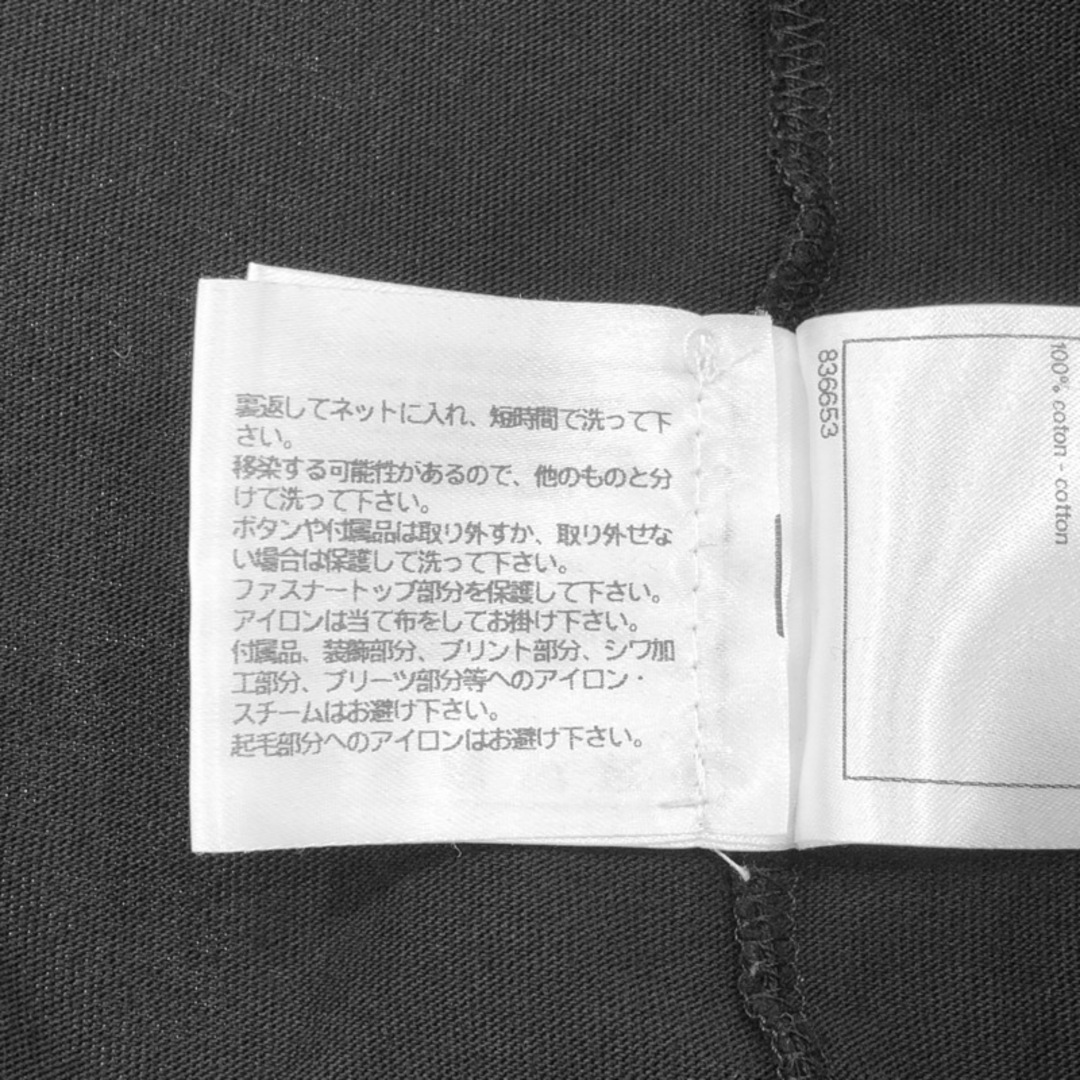 裏返してネットに入れ、短時間で洗って下
さい。
移染する可能性があるので、他のものと分
けて洗って下さい。
ボタンや付属品は取り外すか、取り外せな
い場合は保護して洗って下さい。
ファスナートップ部分を保護して下さい。
アイロンは当て布をしてお掛け下さい。
付属品、装飾部分、プリント部分、シワ加
工部分、プリーツ部分等へのアイロン・
スチームはお避け下さい。
起毛部分へのアイロンはお避け下さい。
836653
100% coton - cotton